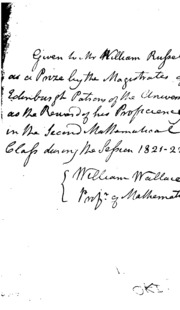 Given to Mr William Russe
as a Prize by the Magistrates o
Edinburgh Patrons of the Univer
as the Reward of his Proficienc
in the Second Mathematical
Class during the Session 1821-2
William Wallac
Profr. of Mathemat